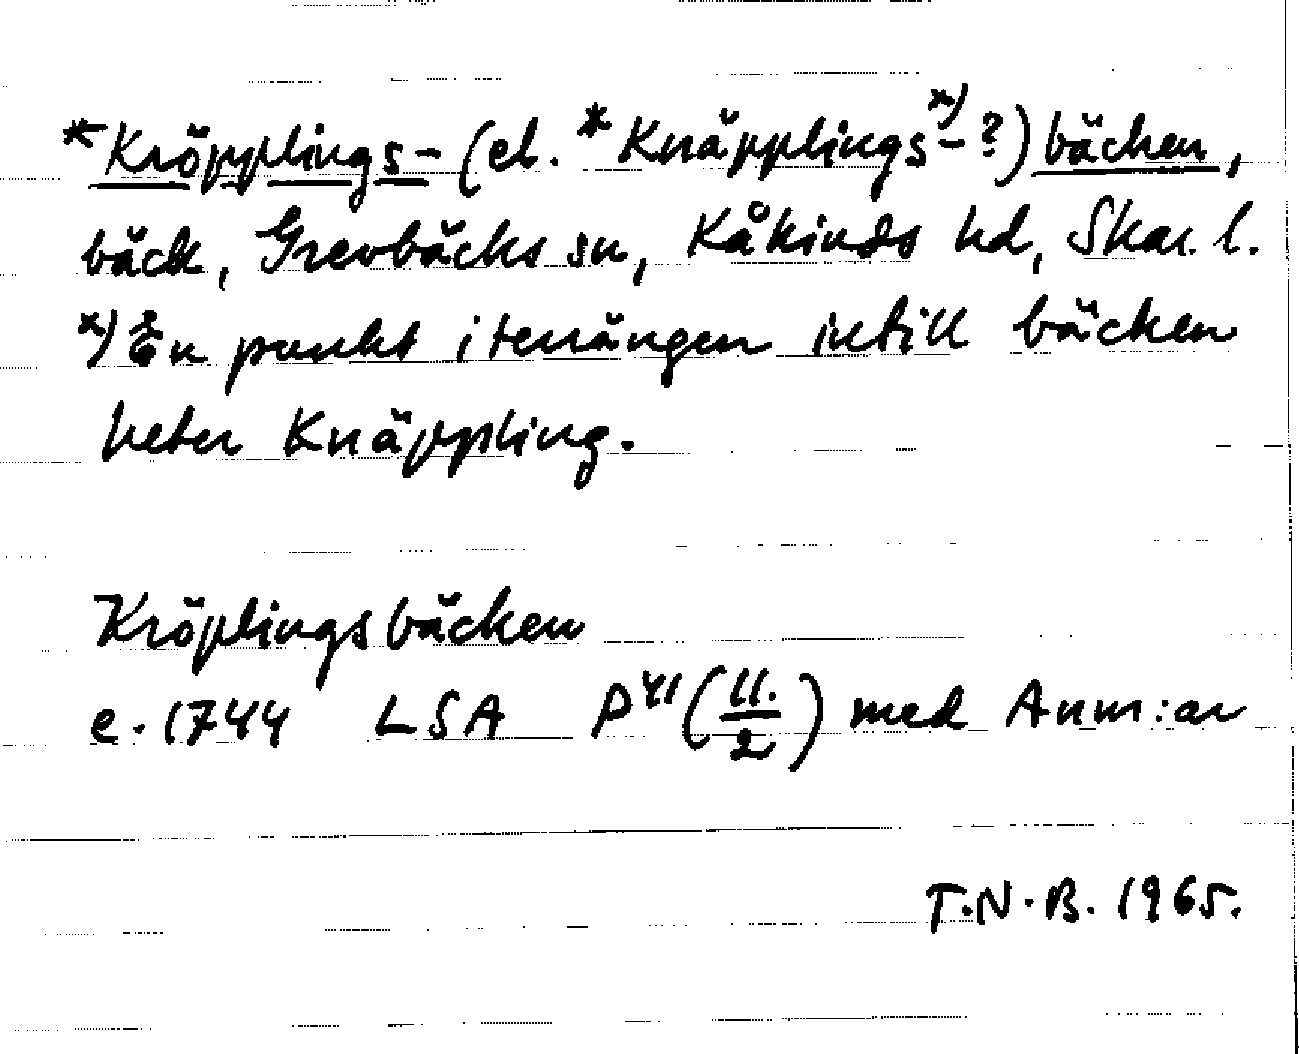 *Kröpplings- (el. *Knäpplings-ˣ⁾?) bäcken,
bäck, Grevbäcks sn, Kåkinds hd, Skar. l.
x) En punkt i terrängen intill bäcken
heter Knäppling.
Kröplingsbäcken
e. 1744 LSA P41 (11./2) med Anm:ar
T.N.B. 1965.